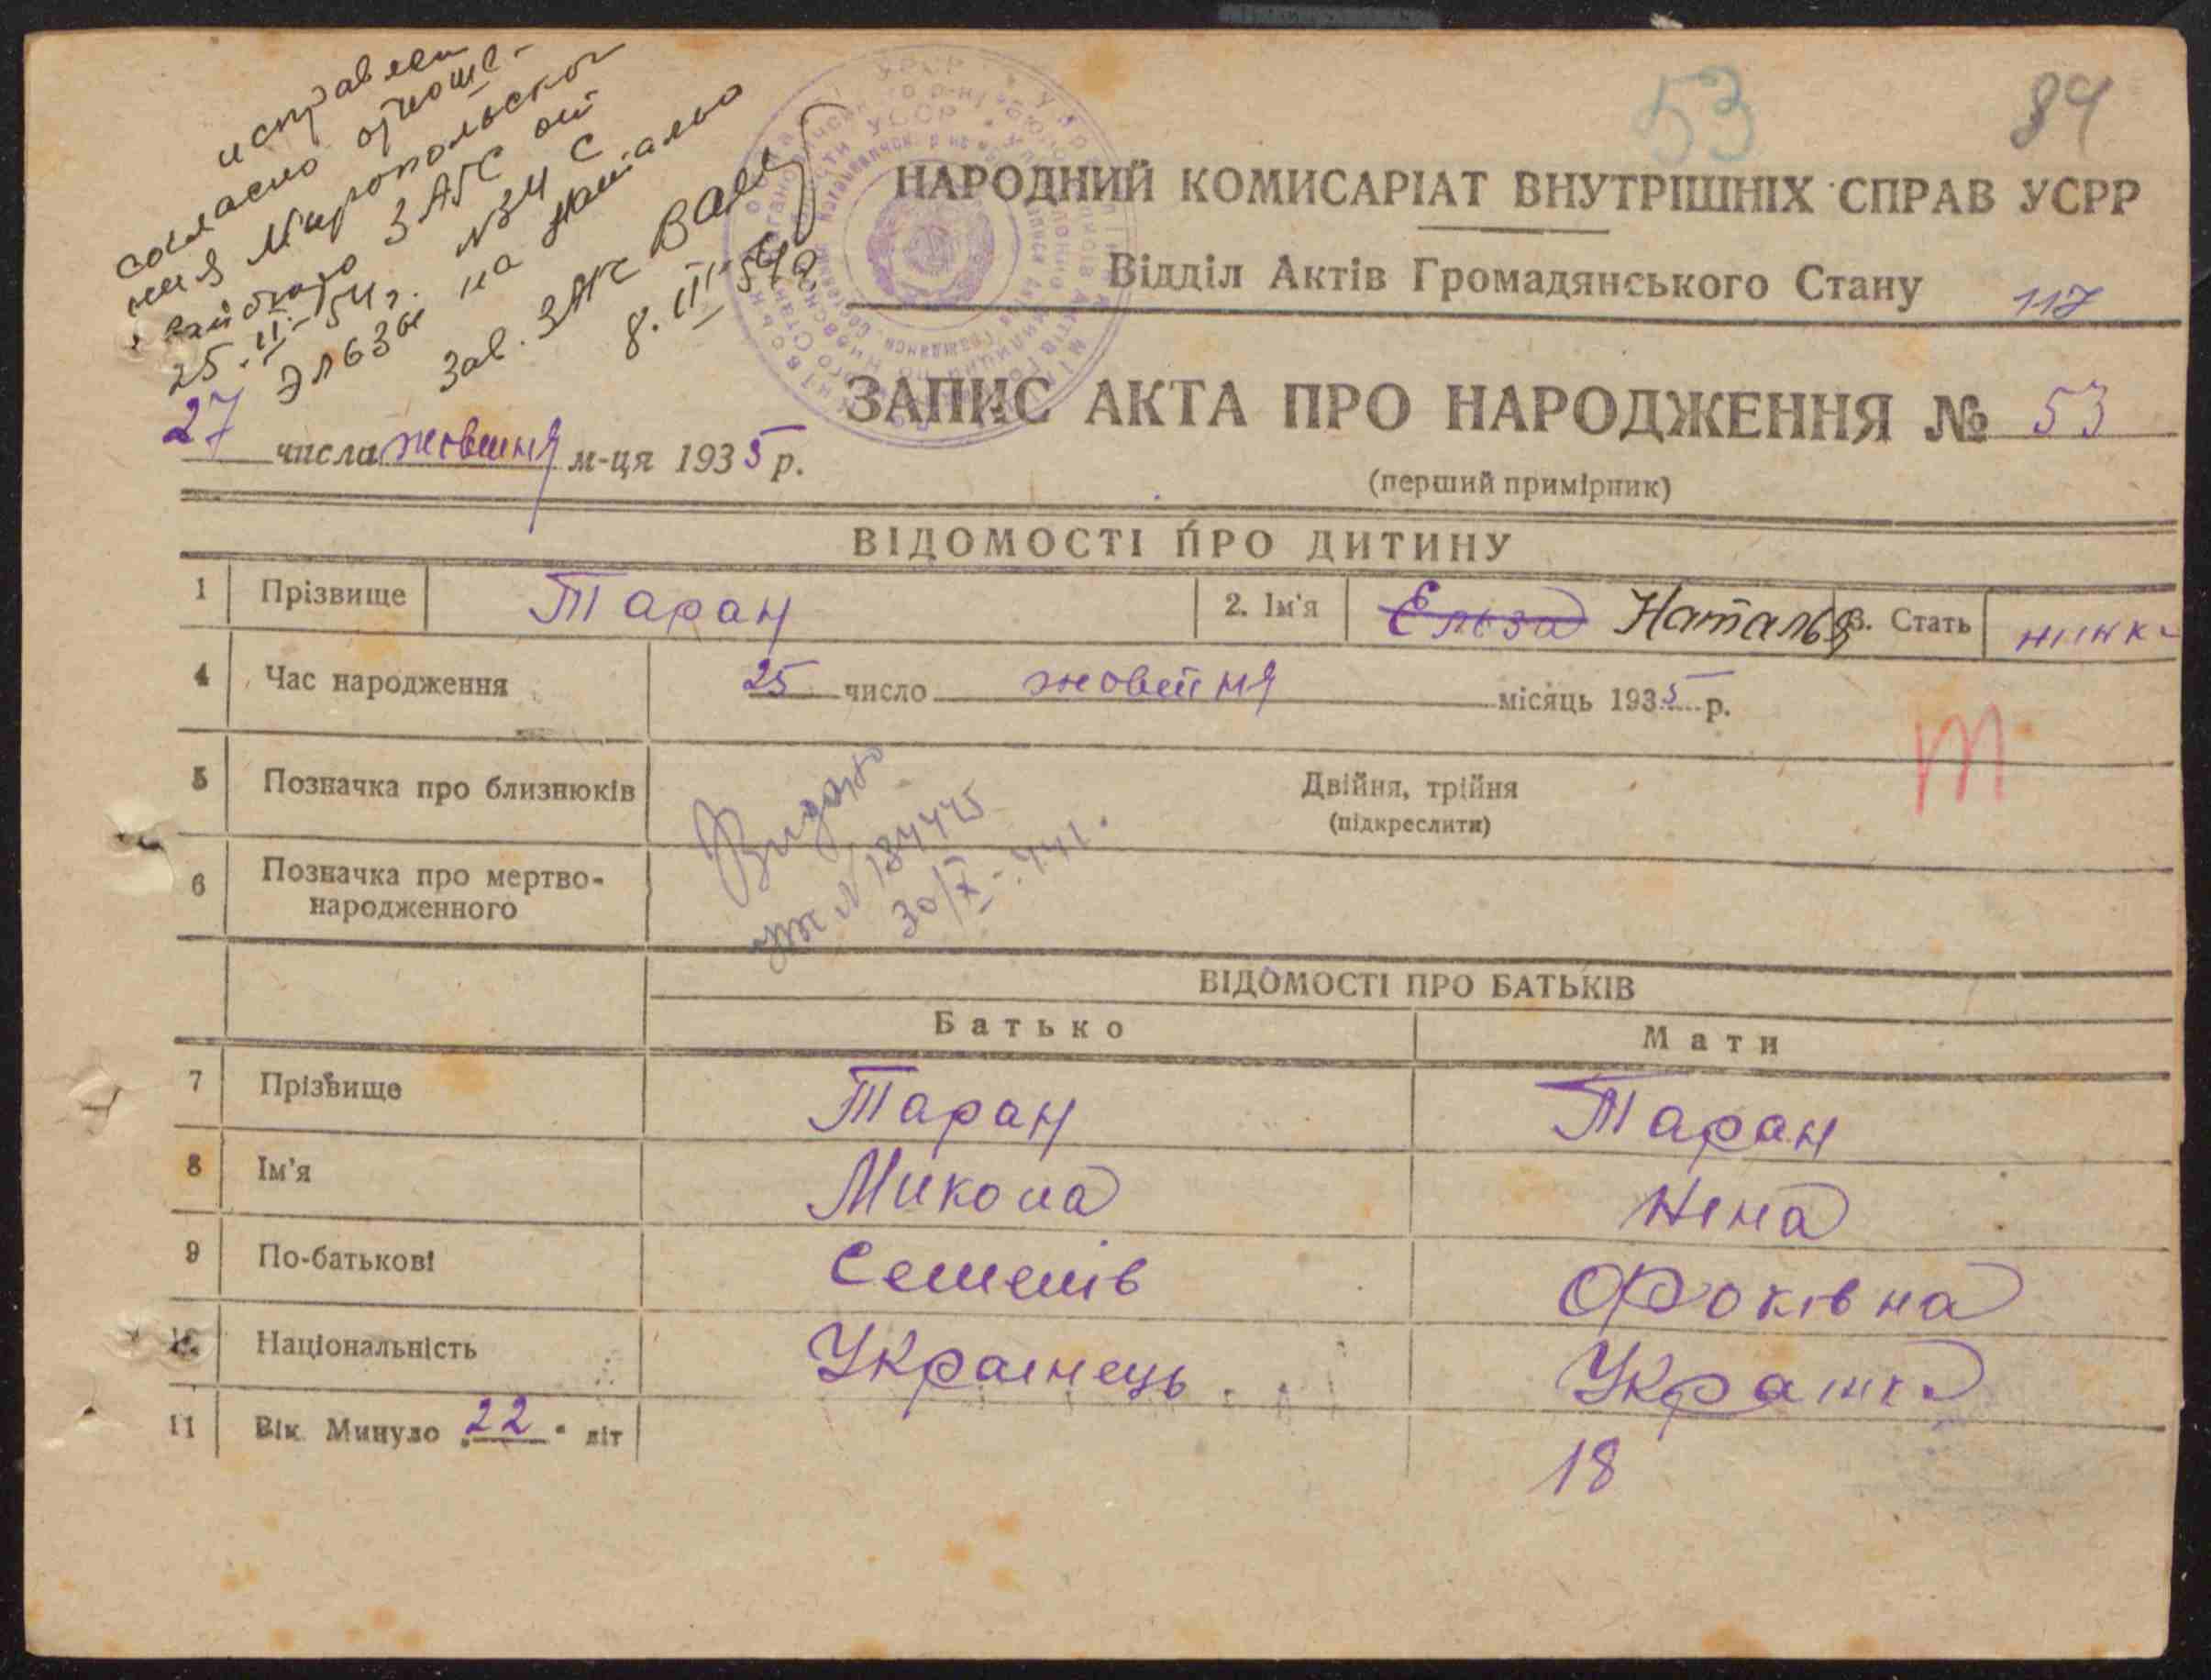 исправлен
согласно отноше-
ния Миропольского
районого ЗАГС от
25.II-54г. №34 с
Эльзы на Наталью
Зав. ЗАГС
8.III-54г
53
84
НАРОДНИЙ КОМИСАРІАТ ВНУТРІШНІХ СПРАВ УСРР
Відділ Актів Громадянського Стану 117
ЗАПИС АКТА ПРО НАРОДЖЕННЯ № 53
27 числа жовтня м-ця 1935 р.
(перший примірник)
ВІДОМОСТІ ПРО ДИТИНУ
1 Прізвище Таран 2. Ім'я Ельза Наталья 3. Стать жінка
4 Час народження 25 число жовтня місяць 1935 р.
т
5 Позначка про близнюків Двійня, трійня
(підкреслити)
Видано
№ 184445
30/X-41.
6 Позначка про мертво-
народженного
ВІДОМОСТІ ПРО БАТЬКІВ
Батько Мати
7 Прізвище Таран Таран
8 Ім'я Микола Ніна
9 По-батькові Семенів Фоківна
10 Національність Украінець Украінка
11 Вік Минуло 22 літ 18